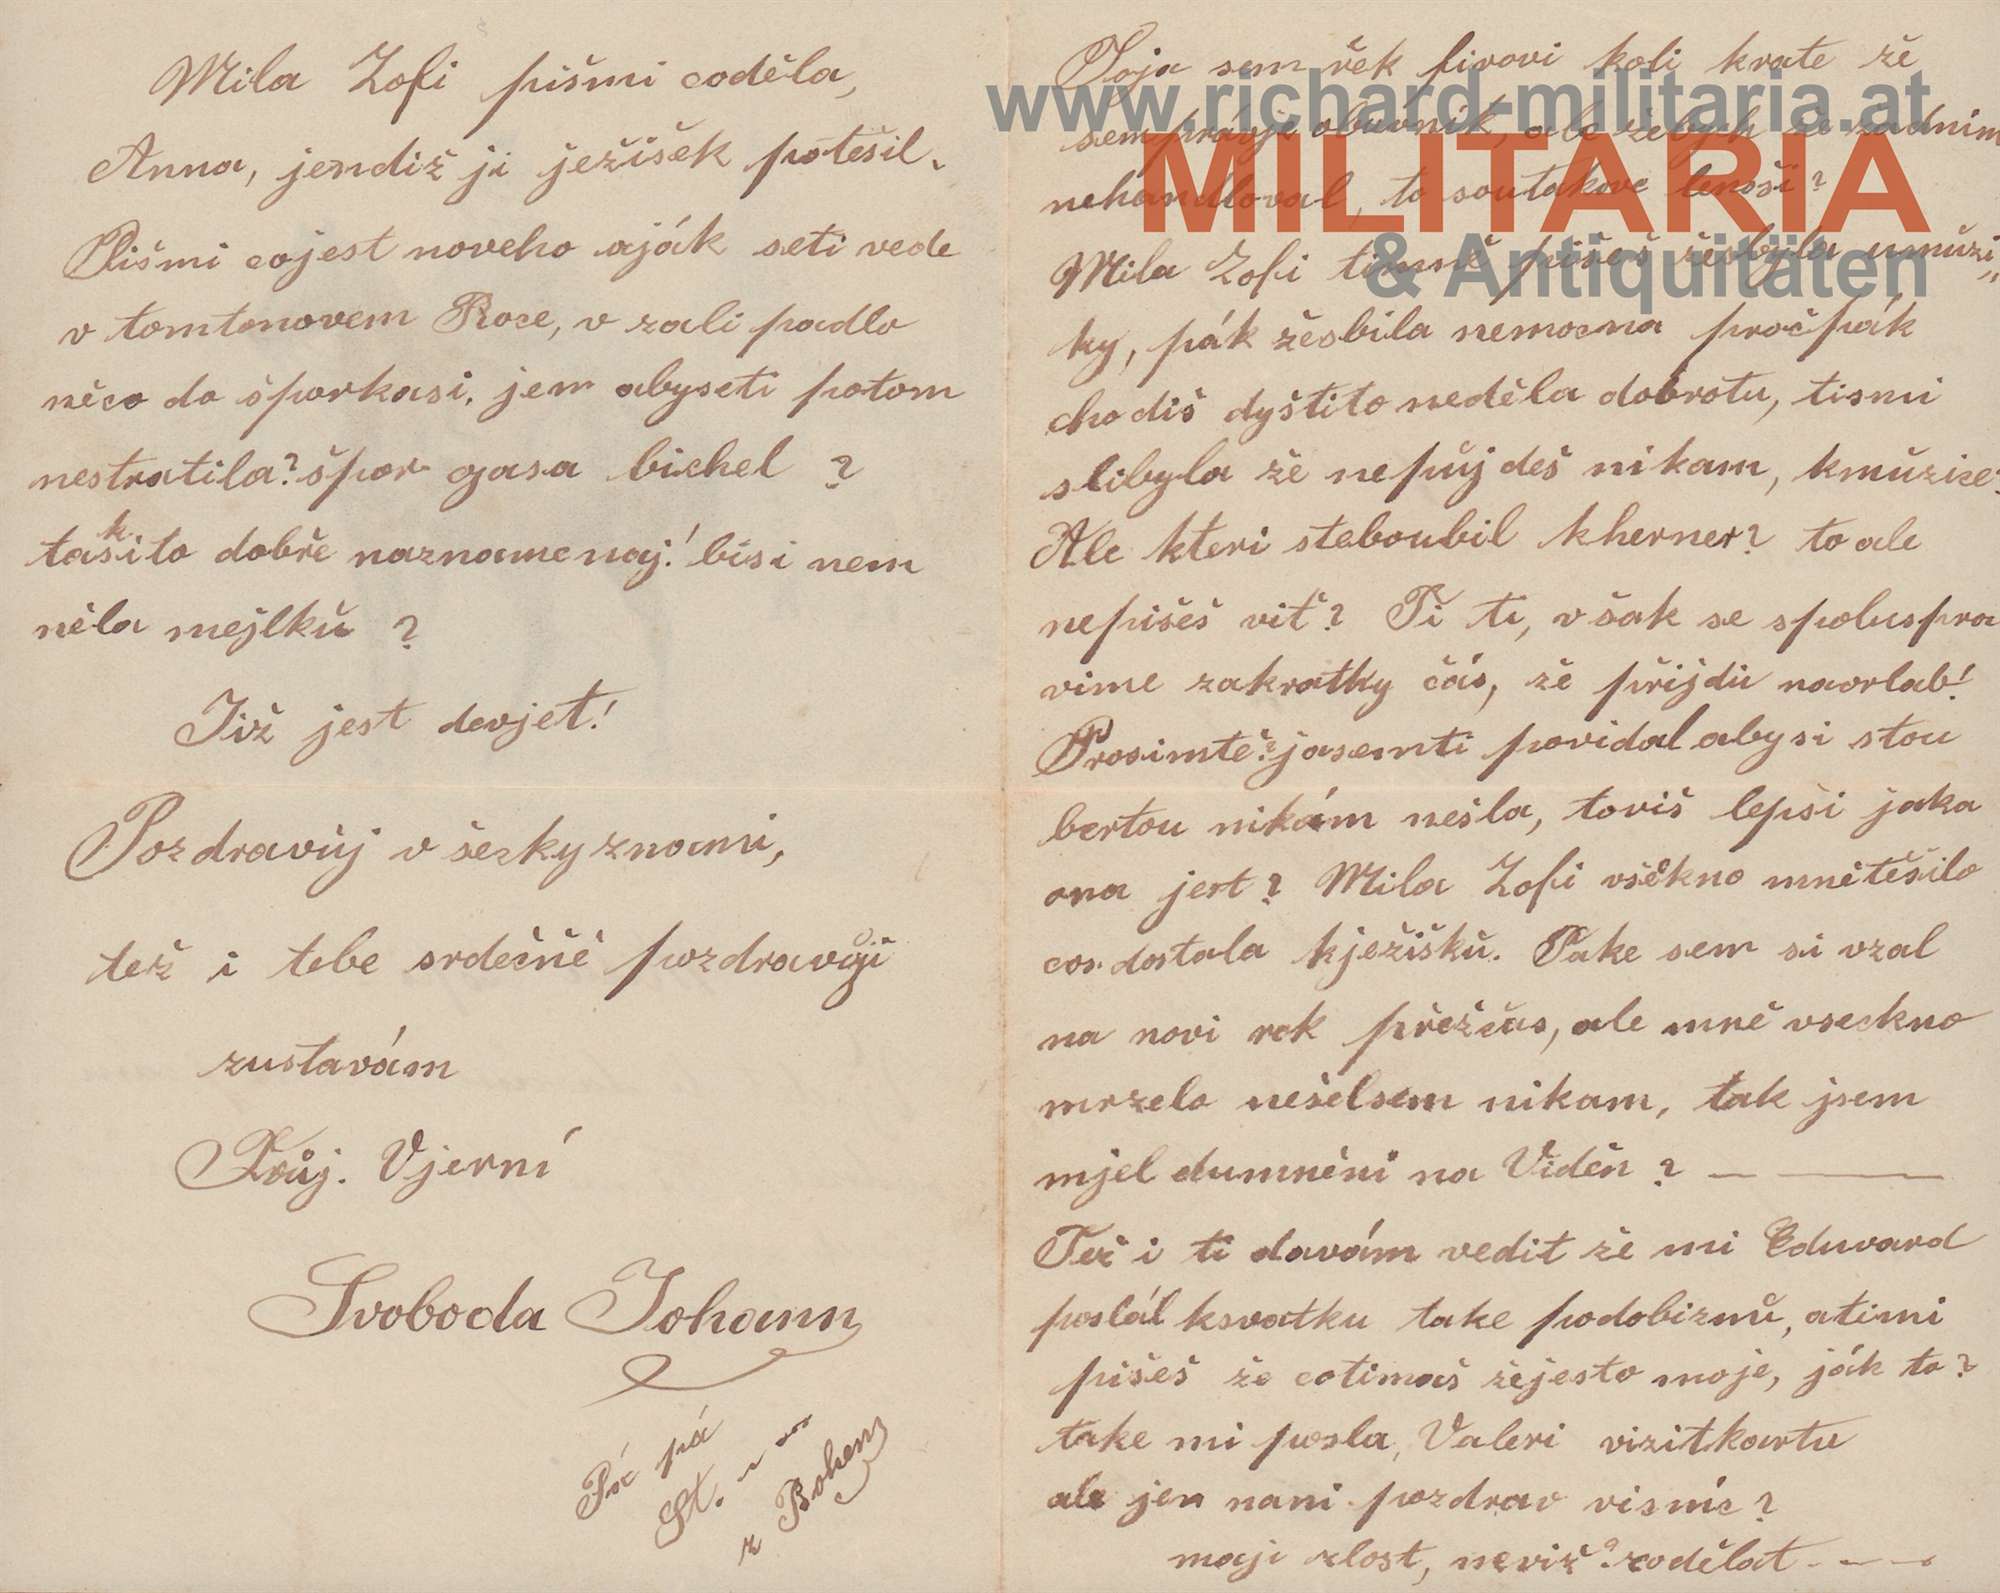 Mila Zofi pišmi coděla,
Anna, jendiž ji ježišek potěšil.
Pišmi cojest noveho aják seti vede
v tomtonovem Roce, v zali padlo
něco do šporkasi, jen abyseti potom
nestratila? špor gasa bichel ?
taksito dobře naznamenaj! bisi nem
něla mejlku ?
Již jest devjet!
Pozdravuj všecky znami,
tež i tebe srděčně pozdravuji
zustavám
Tvůj. Vjerní
Svoboda Johann
Pá pá
St.
z Bohen
Toja sem řek firovi koli krate že
sem právje obuvnik, ale žebych se žadnim
nehandloval, to soutakove lenoši?
Mila Zofi timně pišeš žesbyla umuzi„
ky, pák žesbila nemocna pročpák
chodiš dyštito neděla dobrotu, tismi
slibyla že nepůjdeš nikam, kmuzice?
Ale kteri steboubil kherner? to ale
nepišeš vit? Ti ti, však se spoluspra
vime zakratky čás, že přijdu naorlab!
Prosimtě? jasemti povidal abysi stou
bertou nikám nešla, toviš lepši jaka
ona jest? Mila Zofi všěkno mnětěšilo
cos dostala kježišku. Take sem si vzal
na novi rok přežčas, ale mně vseckno
mrzelo nešelsem nikam, tak jsem
mjel dumněni na Viděn ? —
Tež i ti davám vedit že mi Eduvard
poslál ksvatku take podobiznu, atimi
pišeš že cotimaš žejesto moje, ják to?
take mi posla, Valeri vizitkartu
ale jen nani pozdrav visnic?
maji zlost, neviž? zodělat - - -
www.richard-militaria.at
MILITARIA
& Antiquitäten